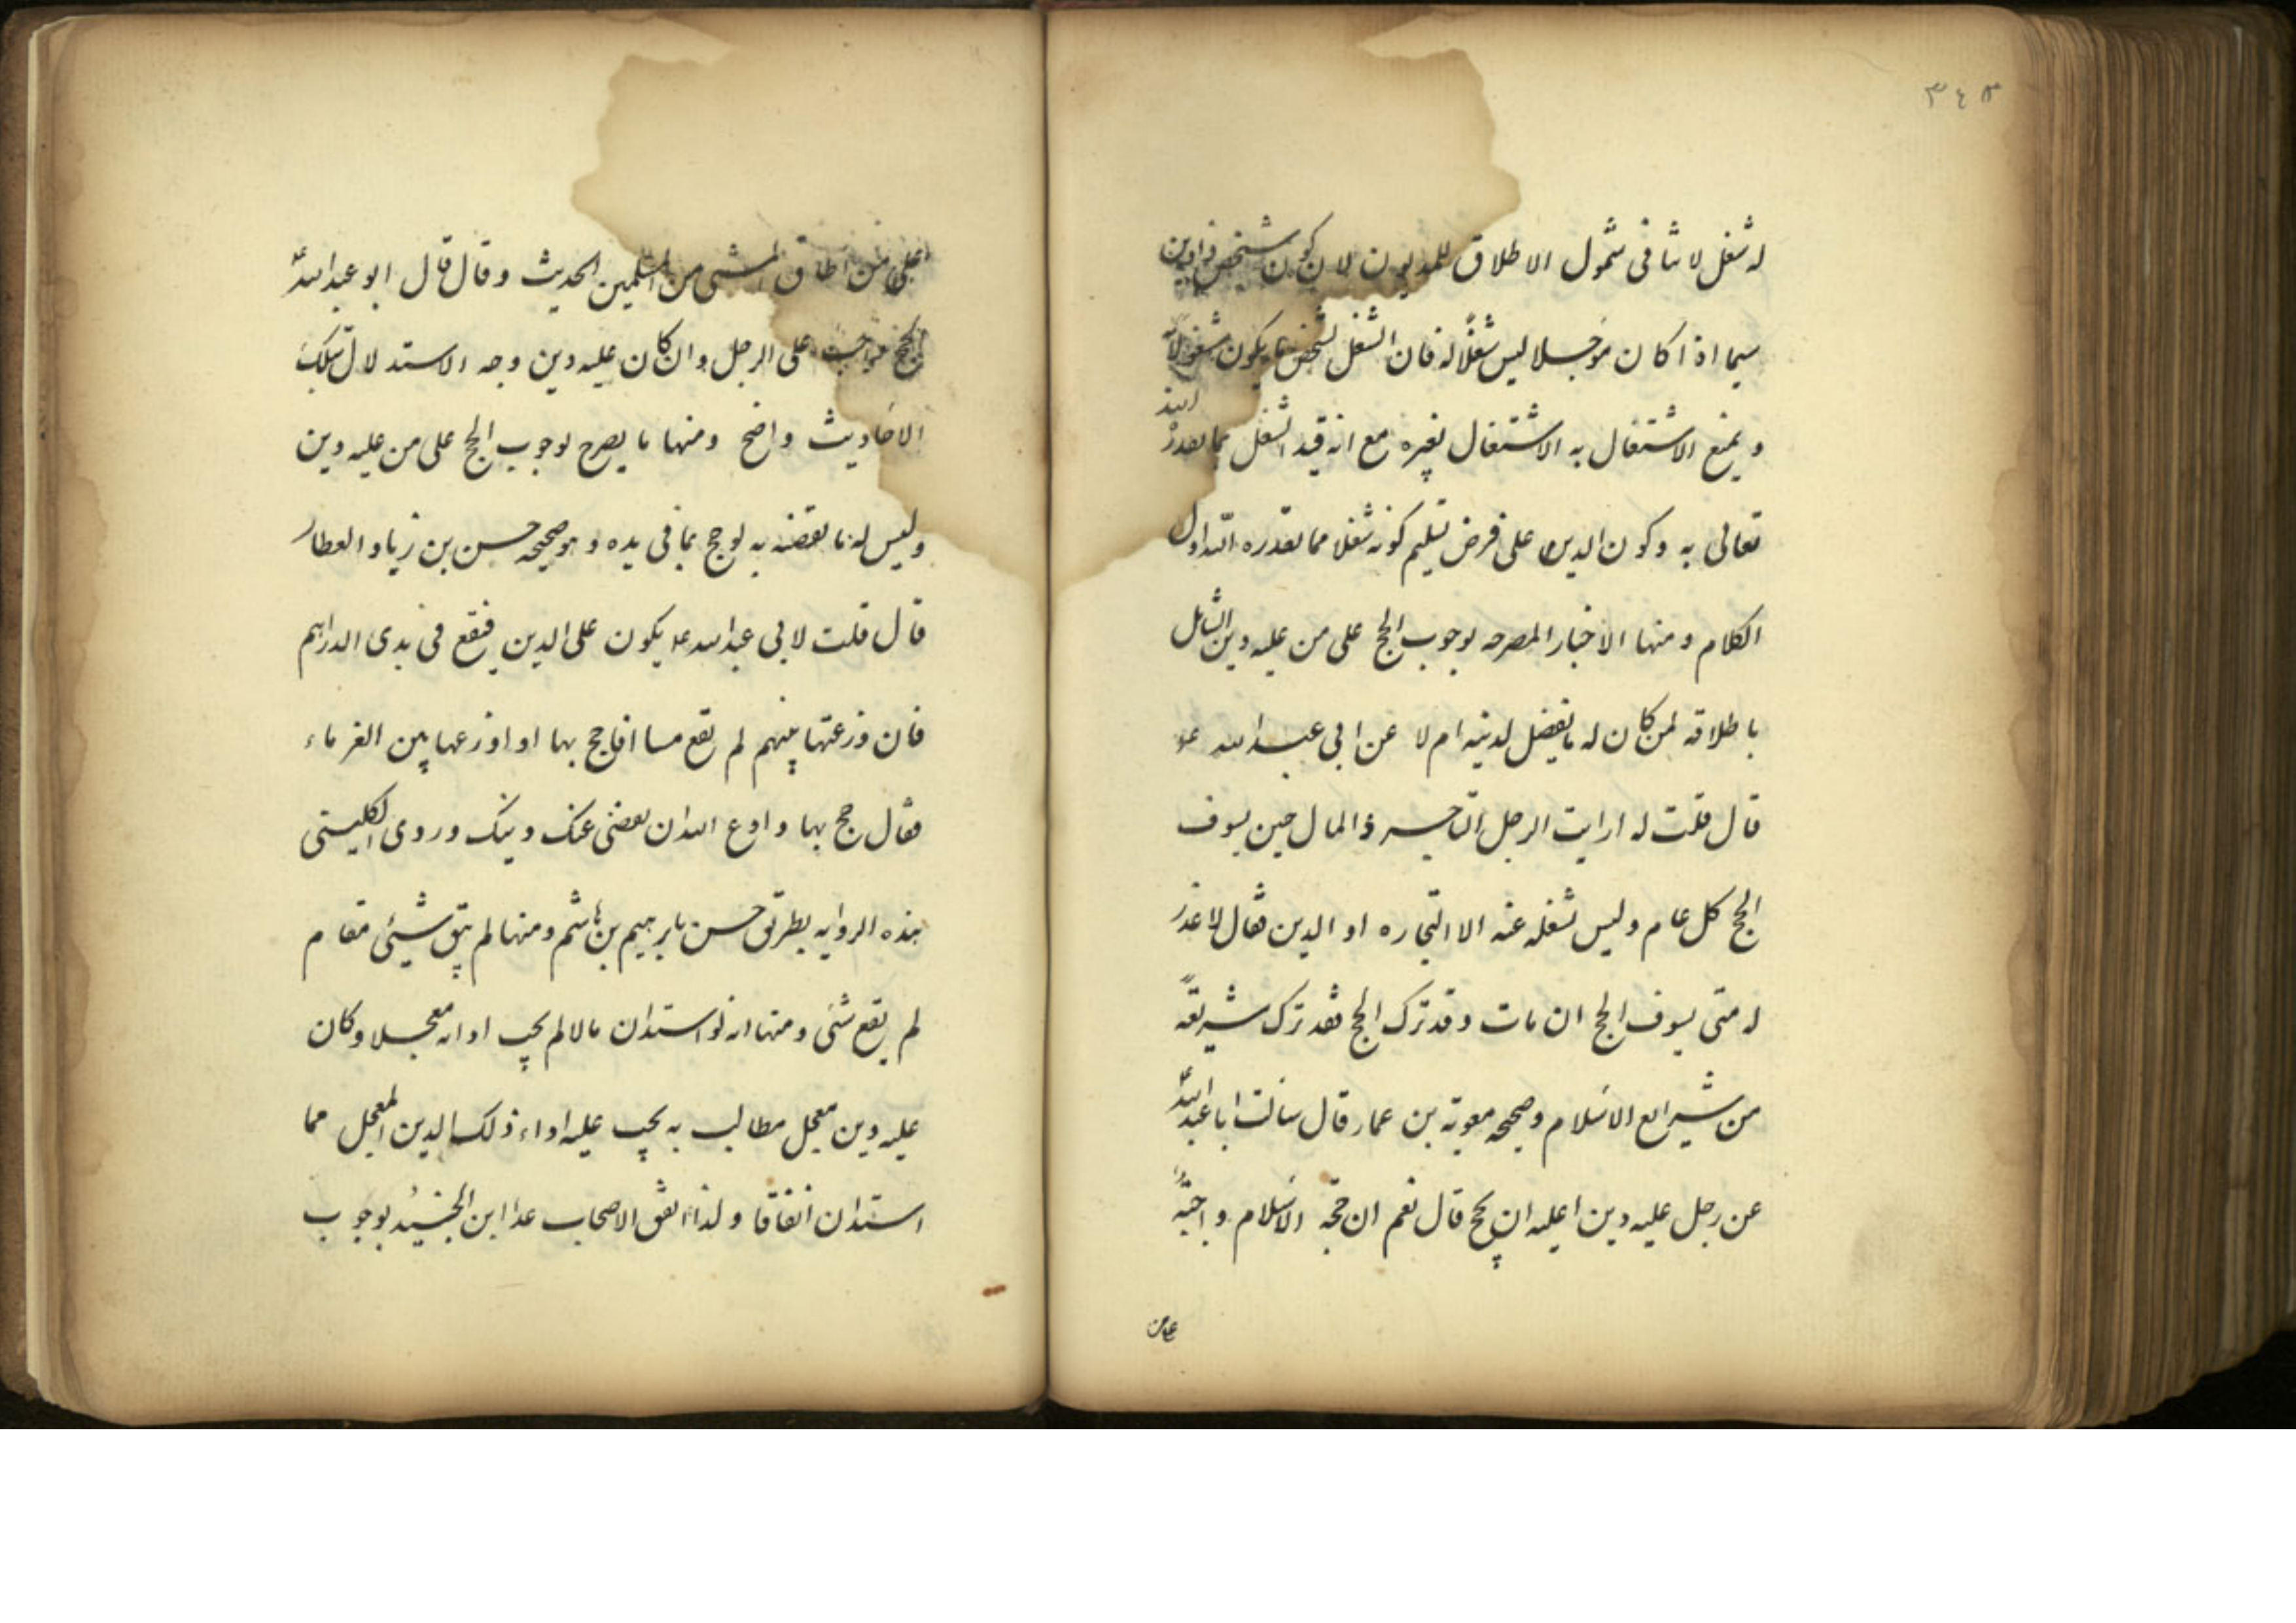 ٣٤٣
له شغل لا ينافى شمول الاطلاق للمديون لان كون شخص ذا دين
سيما اذا كان مؤجلا ليس شغلا له فان الشغل لشخص ما يكون مشغولا به
و يمنع الاشتغال به الاشتغال بغيره مع انه قيد الشغل بما يعذره الله
تعالى به وكون الدين على فرض تسليم كونه شغلا مما يعذره الله اول
الكلام ومنها الاخبار المصرحه بوجوب الحج على من عليه دين الشامل
باطلاقه لمن كان له ما يفضل لدينه ام لا عن ابى عبد الله ع
قال قلت له ارايت الرجل التاجر ذا المال حين يسوف
الحج كل عام وليس تشغله عنه الا التجاره او الدين فقال لا عذر
له متى يسوف الحج ان مات وقد ترك الحج فقد ترك شريعة
من شرايع الاسلام وصحيحه معوية بن عمار قال سالت ابا عبد الله ع
عن رجل عليه دين اعليه ان يحج قال نعم ان حجة الاسلام واجبة
على من
على من اطاق المشى من المسلمين الحديث وقال قال ابو عبد الله ع
الحج واجب على الرجل وان كان عليه دين وجه الاستدلال بتلك
الاحاديث واضح ومنها ما يصرح بوجوب الحج على من عليه دين
وليس له ما يقضيه به لو حج بما فى يده و هو صحيحه حسن بن زياد العطار
قال قلت لابى عبد الله ع يكون على الدين فيقع فى يدى الدراهم
فان وزعتها بينهم لم يقع مسا افاحج بها او اوزعها بين الغرماء
فقال حج بها و ادع الله ان يقضى عنك دينك وروى الكلينى
هذه الروايه بطريق حسن بابرهيم بن هاشم ومنها لم يبق شيئى مقام
لم يقع شئى ومنها انه لو استدان مالا لم يجب اداه معجلا وكان
عليه دين معجل مطالب به يجب عليه اداء ذلك الدين المعجل مما
استدان اتفاقا ولذا اتفق الاصحاب عدا ابن الجنيد بوجوب